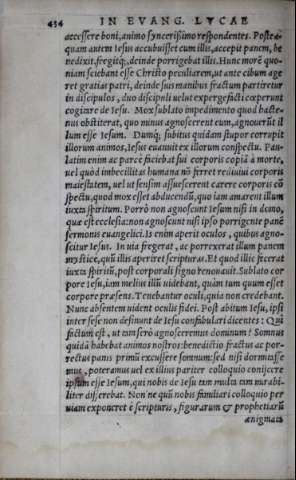 454 IN EVANG. LVCAE
accessere boni, animo syncerißimo respondentes. Posteà-
quam autem Iesus accubuisset cum illis, accepit panem, be
nedixit, fregitq;, deinde porrigebat illis. Hunc morē quo-
niam sciebant esse Christo peculiarem, ut ante cibum age
ret gratias patri, deinde suis manibus fractum partiretur
in discipulos, duo discipuli uelut expergefacti cœperunt
cogitare de Iesu. Mox sublato impedimento quod hacte-
nus obstiterat, quo minus agnoscerent eum, agnouerūt il
lum esse Iesum. Dumq; subitus quidam stupor corripit
illorum animos, Iesus euanuit ex illorum conspectu. Pau-
latim enim ac parcè faciebat sui corporis copiā à morte,
uel quòd imbecillitas humana nō ferret rediuiui corporis
maiestatem, uel ut sensim assuescerent carere corporis cō
spectu, quod mox esset abducendū, quo iam amarent illum
iuxta spiritum. Porrò non agnoscunt Iesum nisi in domo,
quæ est ecclesia: non agnoscunt nisi ipso porrigente panē
sermonis euangelici. Is enim aperit oculos, quibus agno-
scitur Iesus. In uia fregerat, ac porrexerat illum panem
mystice, quū illis aperiret scripturas. Et quod illic fecerat
iuxta spiritū, post corporali signo renouauit. Sublato cor
pore Iesu, iam melius illū uidebant, quàm tum quum esset
corpore præsens. Tenebantur oculi, quia non credebant.
Nunc absentem uident oculis fidei. Post abitum Iesu, ipsi
inter sese non desinunt de Iesu confabulari dicentes: Quî
factum est, ut tam serò agnosceremus dominum? Somnus
quidā habebat animos nostros: benedictio fractus ac por-
rectus panis primū excussere somnum: sed nisi dormisse
mus, poteramus uel ex illius pariter colloquio conijcere
ipsum esse Iesum, qui nobis de Iesu tam multa tam mirabi-
liter disserebat. Non ne quū nobis familiari colloquio per
uiam exponeret è scripturis, figurarum & prophetiarū
ænigmata